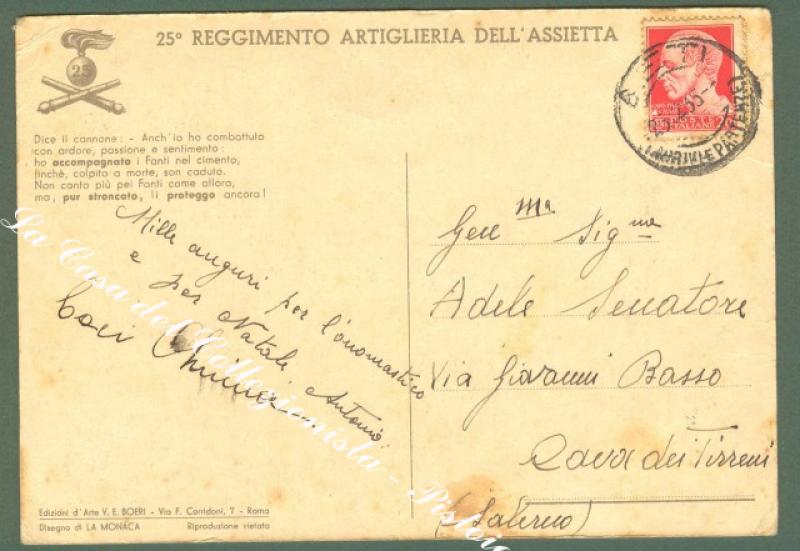 25º REGGIMENTO ARTIGLIERIA DELL'ASSIETTA
25
Dice il cannone: - Anch'io ho combattuto
con ardore, passione e sentimento:
ho accompagnato i Fanti nel cimento,
finchè, colpito a morte, son caduto.
Non canto più pei Fanti come allora,
ma, pur stroncato, li proteggo ancora!
Mille auguri per l'onomastico
e per Natale Antonio
Baci
Gen ma Sig. ne
Adele Senatore
Via Giovanni Basso
Cava dei Tirreni
(Salerno)
Edizioni d'Arte V. E. BOERI - Via F. Corridoni, 7 - Roma
Disegno di LA MONACA Riproduzione vietata
La Casa del Collezionista - Pistoia